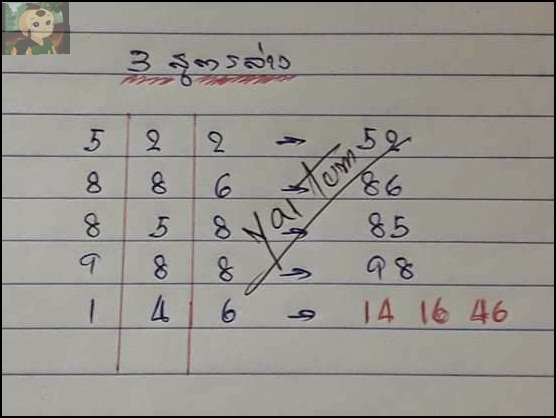 3 สูตรล่าง
5 2 2 → 52
8 8 6 → 86
8 5 8 → 85
9 8 8 → 98
1 4 6 → 14 16 46
Yai tum